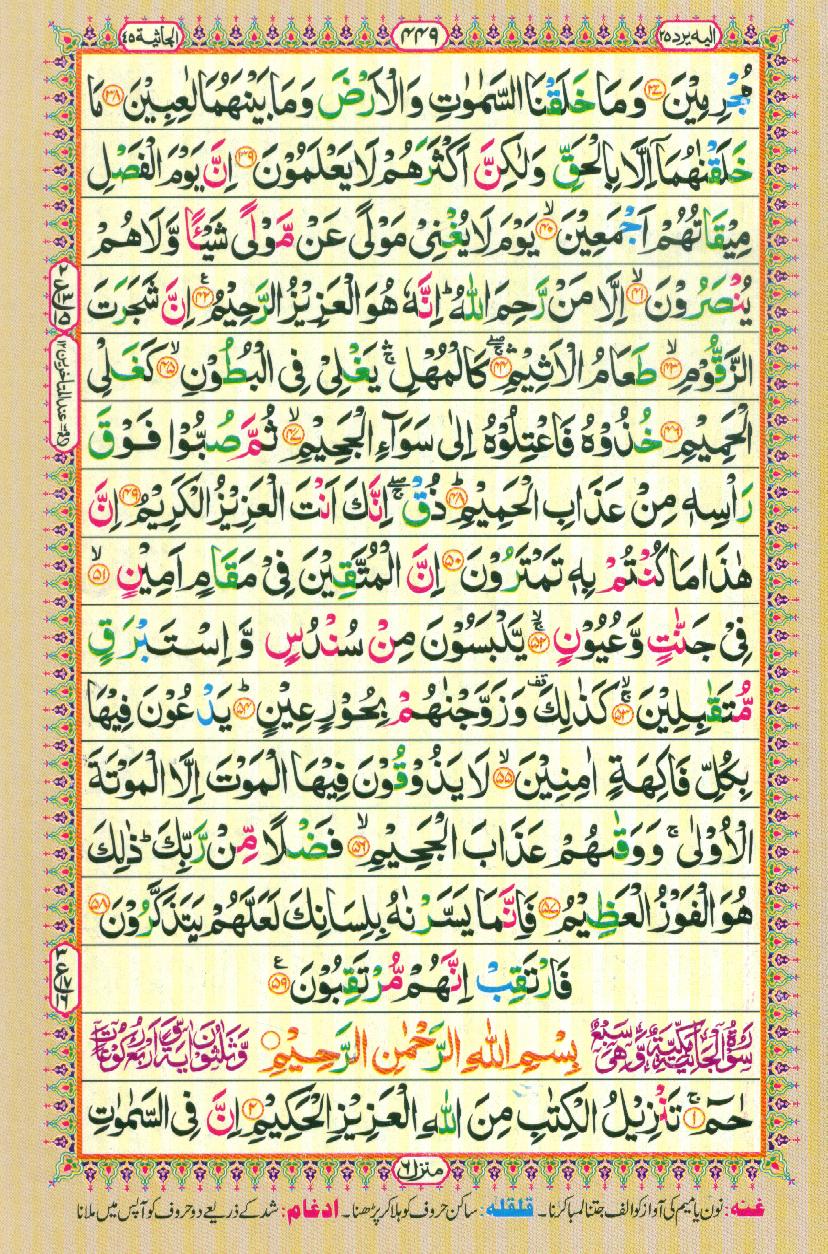 الیه یرد ۲۵
۴۴۹
الجاثیة ۴۵
مُجْرِمِيْنَ ۝۳۷ وَمَا خَلَقْنَا السَّمٰوٰتِ وَالْاَرْضَ وَمَا بَيْنَهُمَا لٰعِبِيْنَ ۝۳۸ مَا
خَلَقْنٰهُمَاۤ اِلَّا بِالْحَقِّ وَلٰكِنَّ اَكْثَرَهُمْ لَا يَعْلَمُوْنَ ۝۳۹ اِنَّ يَوْمَ الْفَصْلِ
مِيْقَاتُهُمْ اَجْمَعِيْنَ ۙ۝۴۰ يَوْمَ لَا يُغْنِيْ مَوْلًى عَنْ مَّوْلًى شَيْـًٔا وَّلَا هُمْ
يُنْصَرُوْنَ ۙ۝۴۱ اِلَّا مَنْ رَّحِمَ اللّٰهُ ؕ اِنَّهٗ هُوَ الْعَزِيْزُ الرَّحِيْمُ ۠۝۴۲ اِنَّ شَجَرَتَ
الزَّقُّوْمِ ۙ۝۴۳ طَعَامُ الْاَثِيْمِ ۛۖۚ۝۴۴ كَالْمُهْلِ ۛۚ يَغْلِيْ فِي الْبُطُوْنِ ۙ۝۴۵ كَغَلْيِ
الْحَمِيْمِ ۝۴۶ خُذُوْهُ فَاعْتِلُوْهُ اِلٰى سَوَآءِ الْجَحِيْمِ ۙ۝۴۷ ثُمَّ صُبُّوْا فَوْقَ
رَاْسِهٖ مِنْ عَذَابِ الْحَمِيْمِ ؕ۝۴۸ ذُقْ ۚۖ اِنَّكَ اَنْتَ الْعَزِيْزُ الْكَرِيْمُ ۝۴۹ اِنَّ
هٰذَا مَا كُنْتُمْ بِهٖ تَمْتَرُوْنَ ۝۵۰ اِنَّ الْمُتَّقِيْنَ فِيْ مَقَامٍ اَمِيْنٍ ۙ۝۵۱
فِيْ جَنّٰتٍ وَّعُيُوْنٍ ۚۙ۝۵۲ يَّلْبَسُوْنَ مِنْ سُنْدُسٍ وَّاِسْتَبْرَقٍ
مُّتَقٰبِلِيْنَ ۚۙ۝۵۳ كَذٰلِكَ ۫ وَزَوَّجْنٰهُمْ بِحُوْرٍ عِيْنٍ ؕ۝۵۴ يَدْعُوْنَ فِيْهَا
بِكُلِّ فَاكِهَةٍ اٰمِنِيْنَ ۙ۝۵۵ لَا يَذُوْقُوْنَ فِيْهَا الْمَوْتَ اِلَّا الْمَوْتَةَ
الْاُوْلٰى ۚ وَوَقٰىهُمْ عَذَابَ الْجَحِيْمِ ۙ۝۵۶ فَضْلًا مِّنْ رَّبِّكَ ؕ ذٰلِكَ
هُوَ الْفَوْزُ الْعَظِيْمُ ۝۵۷ فَاِنَّمَا يَسَّرْنٰهُ بِلِسَانِكَ لَعَلَّهُمْ يَتَذَكَّرُوْنَ ۝۵۸
فَارْتَقِبْ اِنَّهُمْ مُّرْتَقِبُوْنَ ۠۝۵۹
سُوْرَةُ الْجَاثِيَةِ مَكِّيَّةٌ وَّهِيَ سَبْعٌ
بِسْمِ اللّٰهِ الرَّحْمٰنِ الرَّحِيْمِ
وَّثَلٰثُوْنَ اٰيَةً وَّاَرْبَعُ رُكُوْعَاتٍ
حٰمٓ ۚ۝۱ تَنْزِيْلُ الْكِتٰبِ مِنَ اللّٰهِ الْعَزِيْزِ الْحَكِيْمِ ۝۲ اِنَّ فِي السَّمٰوٰتِ
منزل ۶
غنہ: نون یا میم کی آواز کو الف جتنا لمبا کرنا۔ قلقلہ: ساکن حروف کو ہلا کر پڑھنا۔ ادغام: شد کے ذریعے دو حروف کو آپس میں ملانا